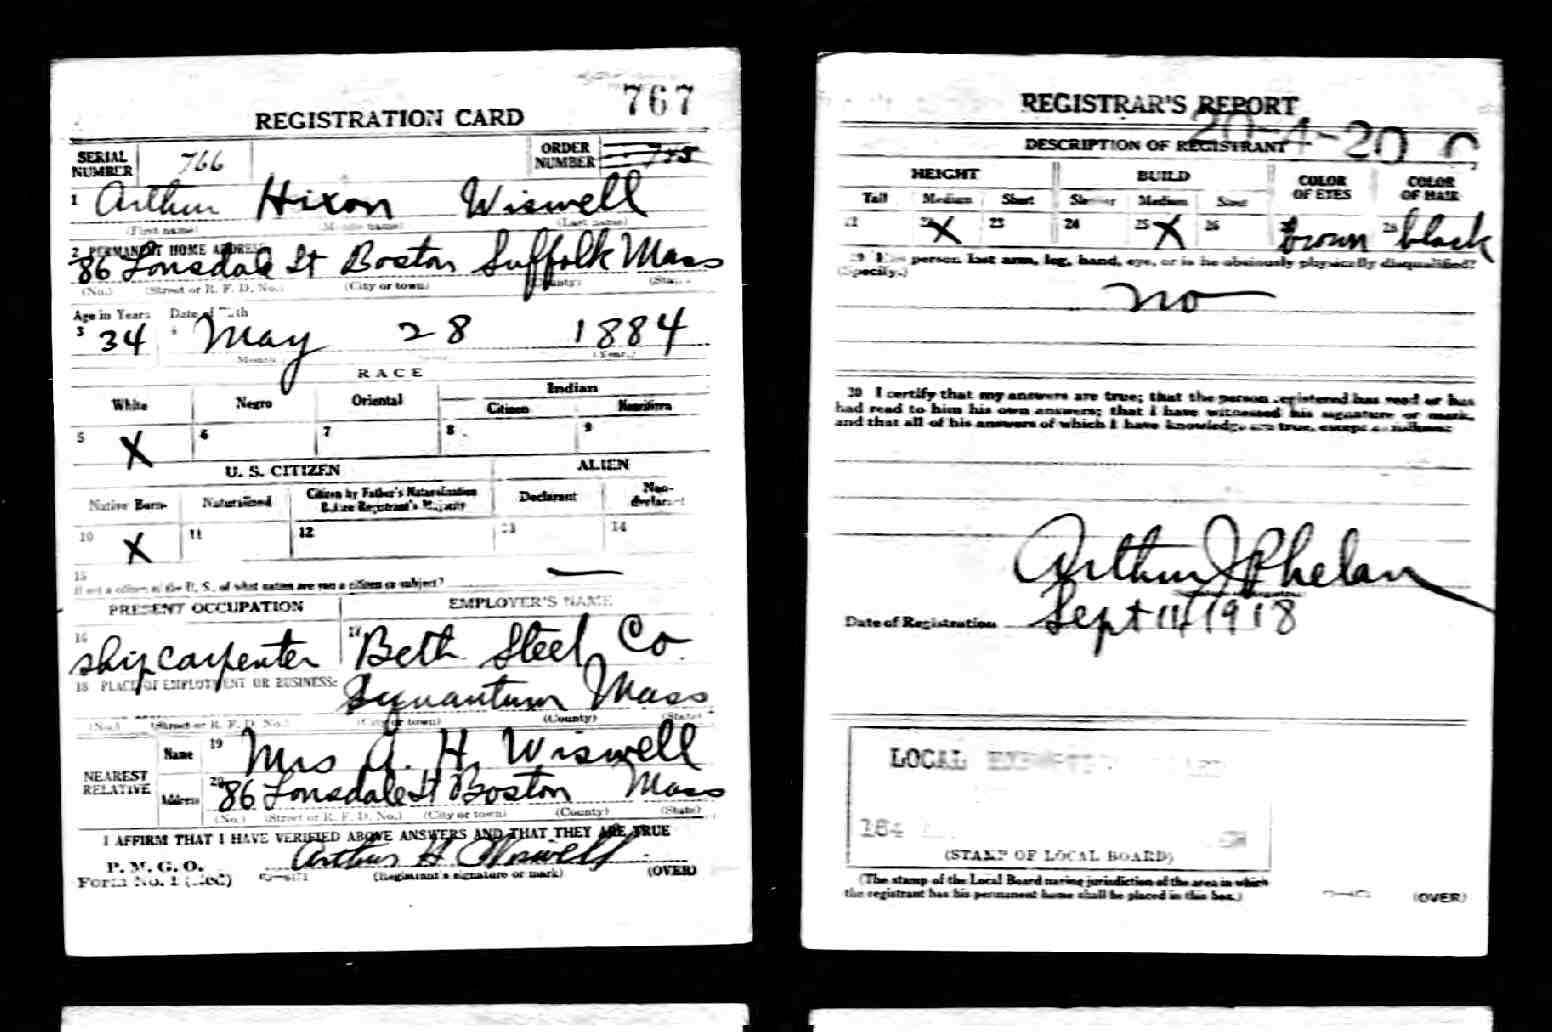 767
REGISTRATION CARD
SERIAL NUMBER 766 ORDER NUMBER
1 Arthur Hixon Wiswell
(First name) (Middle name) (Last name)
2 PERMANENT HOME ADDRESS
86 Lonsdale St Boston Suffolk Mass
(No.) (Street or R. F. D. No.) (City or town) (County) (State)
Age in Years Date of Birth
3 34 4 May 28 1884
Month (Year.)
RACE
White Negro Oriental Indian
Citizen Noncitizen
5 X 6 7 8 9
U. S. CITIZEN ALIEN
Native Born Naturalized Citizen by Father's Naturalization Before Registrant's Majority Declarant Non-declarant
10 X 11 12 13 14
15 If not a citizen of the U. S., of what nation are you a citizen or subject? —
PRESENT OCCUPATION EMPLOYER'S NAME
16 ship carpenter 17 Beth Steel Co.
18 PLACE OF EMPLOYMENT OR BUSINESS: Squantum Mass
(No.) (Street or R. F. D. No.) (City or town) (County) (State)
NEAREST RELATIVE Name 19 Mrs A. H. Wiswell
Address 20 86 Lonsdale St Boston Mass
(No.) (Street or R. F. D. No.) (City or town) (County) (State)
I AFFIRM THAT I HAVE VERIFIED ABOVE ANSWERS AND THAT THEY ARE TRUE
P. M. G. O.
Form No. 1 (Red) Arthur H Wiswell
(Registrant's signature or mark) (OVER)
REGISTRAR'S REPORT
20-4-20 C
DESCRIPTION OF REGISTRANT
HEIGHT BUILD COLOR OF EYES COLOR OF HAIR
Tall Medium Short Slender Medium Stout
21 22 X 23 24 25 X 26 brown 28 black
29 Has person lost arm, leg, hand, eye, or is he obviously physically disqualified?
(Specify.)
no
30 I certify that my answers are true; that the person registered has read or has
had read to him his own answers; that I have witnessed his signature or mark,
and that all of his answers of which I have knowledge are true, except as follows:
Arthur J Phelan
Date of Registration Sept 11/1918
LOCAL EXEMPTION BOARD
184
(STAMP OF LOCAL BOARD)
(The stamp of the Local Board having jurisdiction of the area in which
the registrant has his permanent home shall be placed in this box.)
(OVER)